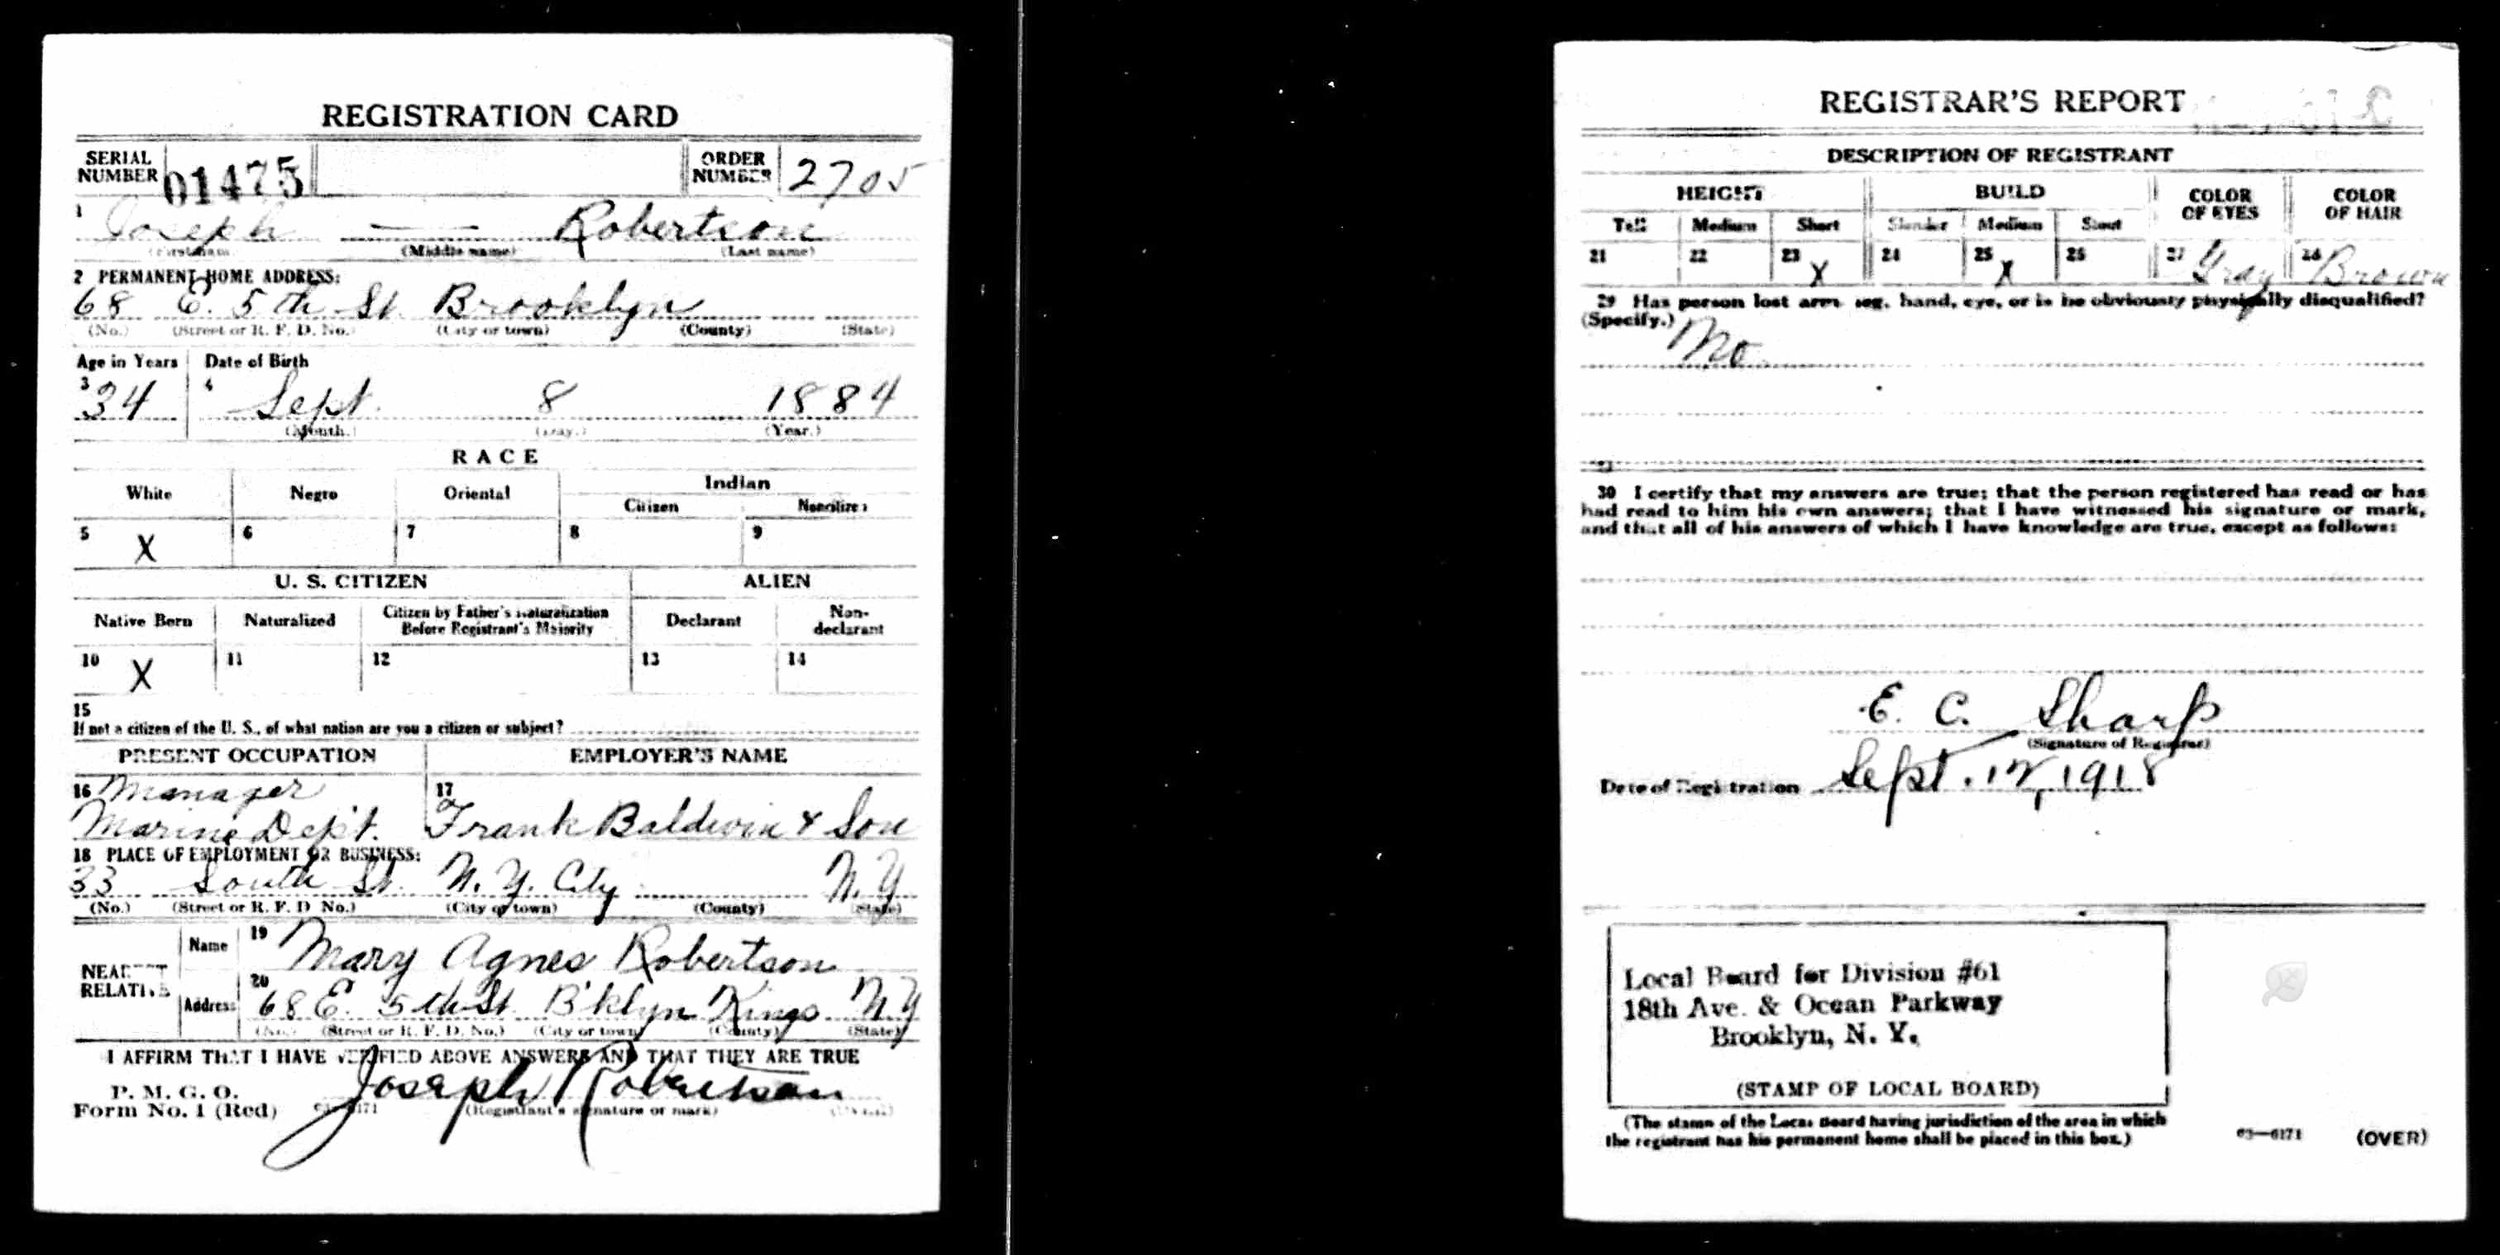 REGISTRATION CARD
SERIAL NUMBER 01475 ORDER NUMBER 2705
1 Joseph — — Robertson
(First name) (Middle name) (Last name)
2 PERMANENT HOME ADDRESS:
68 E. 5th St. Brooklyn
(No.) (Street or R. F. D. No.) (City or town) (County) (State)
Age in Years Date of Birth
3 34 4 Sept. 8 1884
(Month.) (Day.) (Year.)
RACE
White Negro Oriental Indian
Citizen Noncitizen
5 X 6 7 8 9
U. S. CITIZEN ALIEN
Native Born Naturalized Citizen by Father's Naturalization Before Registrant's Majority Declarant Non-declarant
10 X 11 12 13 14
15
If not a citizen of the U. S., of what nation are you a citizen or subject?
PRESENT OCCUPATION EMPLOYER'S NAME
16 Manager 17
Marine Dep't. Frank Baldwin & Son
18 PLACE OF EMPLOYMENT OR BUSINESS:
33 South St. N. Y. City N. Y
(No.) (Street or R. F. D No.) (City or town) (County) (State)
NEAREST RELATIVE Name 19 Mary Agnes Robertson
Address 20 68 E. 5th St B'klyn Kings N. Y
(No.) (Street or R. F. D. No.) (City or town) (County) (State)
I AFFIRM THAT I HAVE VERIFIED ABOVE ANSWERS AND THAT THEY ARE TRUE
P. M. G. O.
Form No. 1 (Red) Joseph Robertson
(Registrant's signature or mark)
REGISTRAR'S REPORT
DESCRIPTION OF REGISTRANT
HEIGHT BUILD COLOR OF EYES COLOR OF HAIR
Tall Medium Short Slender Medium Stout
21 22 23 X 24 25 X 26 27 Gray 28 Brown
29 Has person lost arm, leg, hand, eye, or is he obviously physically disqualified?
(Specify.) No
30 I certify that my answers are true; that the person registered has read or has
had read to him his own answers; that I have witnessed his signature or mark,
and that all of his answers of which I have knowledge are true, except as follows:
E. C. Sharp
(Signature of Registrar)
Date of Registration Sept. 12, 1918
Local Board for Division #61
18th Ave. & Ocean Parkway
Brooklyn, N. Y.
(STAMP OF LOCAL BOARD)
(The stamp of the Local Board having jurisdiction of the area in which
the registrant has his permanent home shall be placed in this box.)
03—6171 (OVER)